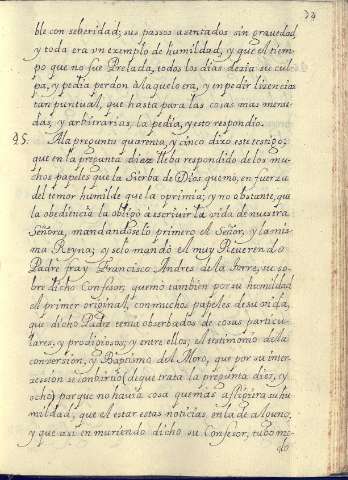 34
ble con seberidad; sus passos asentados sin gravedad
y toda era vn exemplo de humildad, y que el tiem-
po que no fue Prelada, todos los dias dezia su cul-
pa, y pedia perdon à la que lo era, y en pedir lizencias
tan puntual, que hasta para las cosas mas menu-
das, y arbitrarias, la pedia, y esto respondio.
45. A la pregunta quarenta, y cinco dixo este testigo;
que en la pregunta diez lleba respondido de los mu-
chos papeles que la Sierba de Dios quemò, en fuerza
del temor humilde que la oprimia; y no obstante, que
la obediencia la obligò à escriuir la vida de nuestra
Señora, mandandoselo primero el Señor, y la mis-
ma Reyna; y se lo mandò el muy Reuerendo
Padre fray Francisco Andres de la Torre, su so-
bre dicho Confesor, quemò tambien por su humildad
el primer original, con muchos papeles de su vida,
que dicho Padre tenia obserbados de cosas particu-
lares, y prodigiosas; y entre ellos, el testimonio de la
conversion, y Baptismo del Moro, que por su inter-
cession se conbirtiò (de que trata la pregunta diez, y
ocho) por que no hauia cosa que mas afligiera su hu-
mildad, que el estar estas noticias en la de alguno,
y que asi en muriendo dicho su Confesor, tubo me-
do